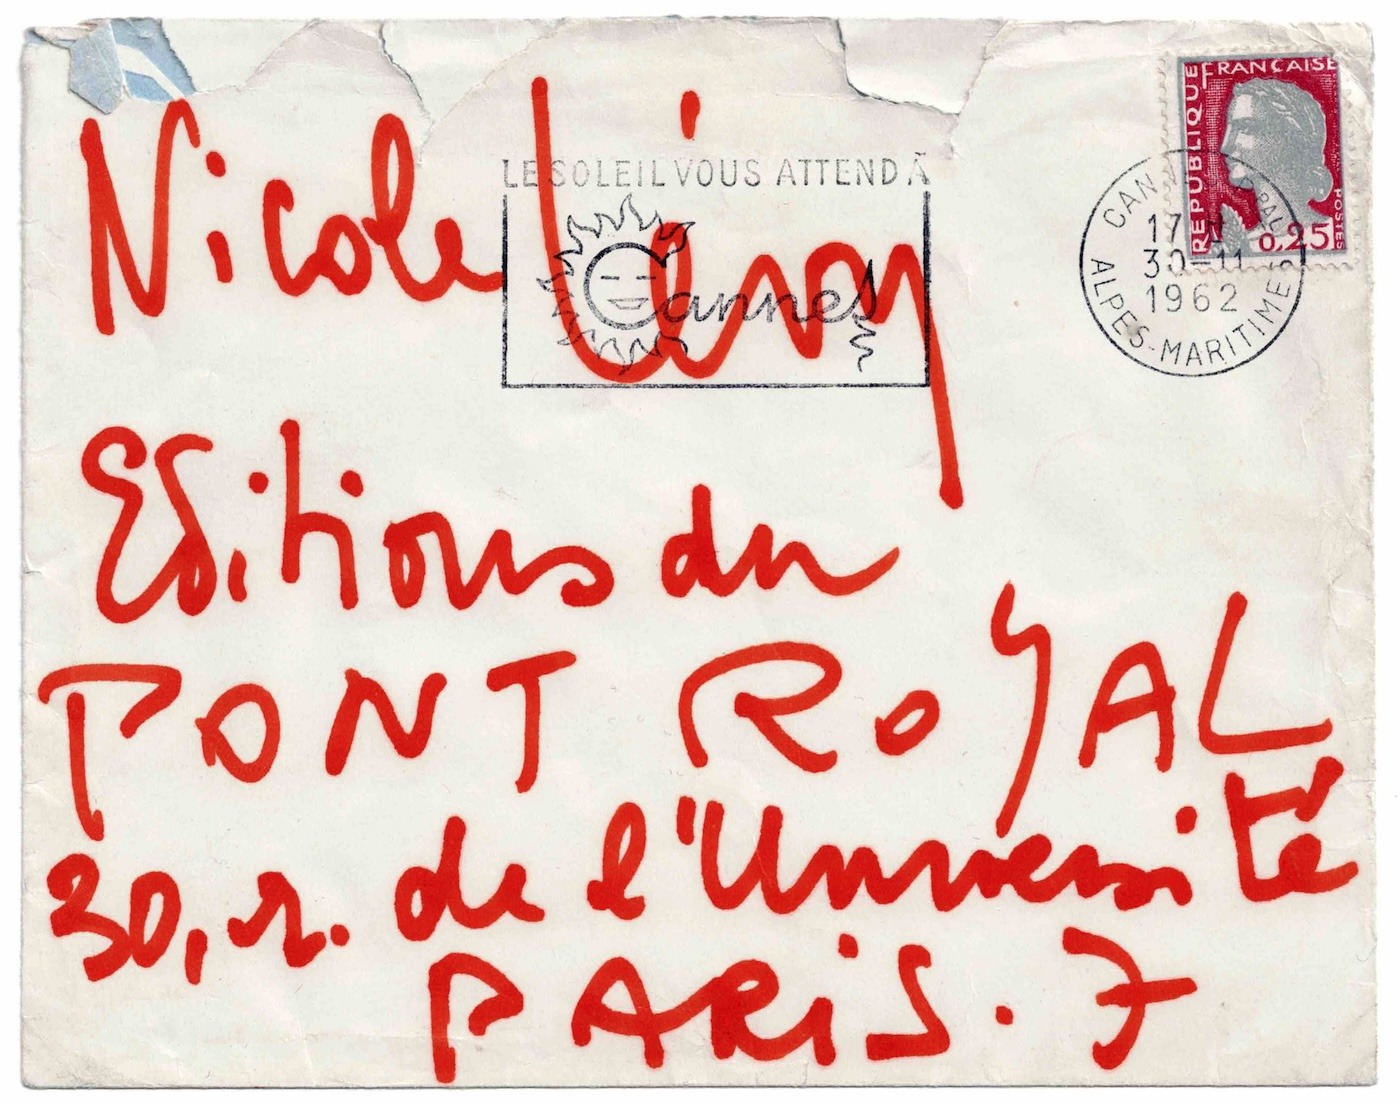 REPUBLIQUE FRANÇAISE
POSTES
0,25
LE SOLEIL VOUS ATTEND À
Cannes
17
30-11
1962
ALPES-MARITIMES
Nicole Lévy
Editions du
PONT ROYAL
30, r. de l'Université
PARIS. 7